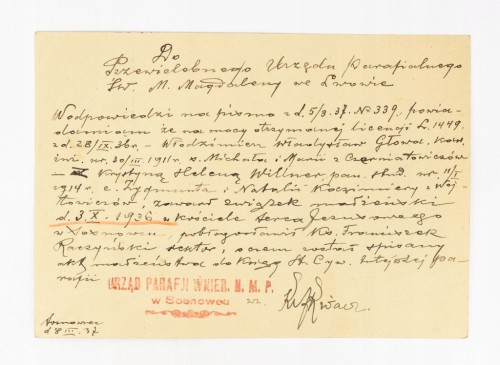 Do
Przewielebnego Urzędu Parafialnego
Św. M. Magdaleny we Lwowie
W odpowiedzi na pismo z d. 5/9. 37. № 339, powia-
damiam że na mocy otrzymanej licencji L. 1449
z d. 28/IX. 36 r. – Włodzimierz Władysław Głowa, kaw.
inż. ur. 30/III. 1911 r. s. Michała i Marii z Czerniatowiczów
– z Krystyną Heleną Willner pan. stud. ur. 11/I
1914 r. c. Zygmunta i Natalii Kazimiery z Wój-
towiczów, zawarł związek małżeński
d. 3. X. 1936 w kościele Serca Jezusowego
w Sosnowcu, pobłogosławił Ks. Franciszek
Raczyński rektor, o czem został spisany
akt małżeństwa do Ksiąg St. Cyw. tutejszej pa-
rafii
URZĄD PARAFJI WNIEB. N. M. P.
w Sosnowcu
Sosnowiec
d 8 III. 37